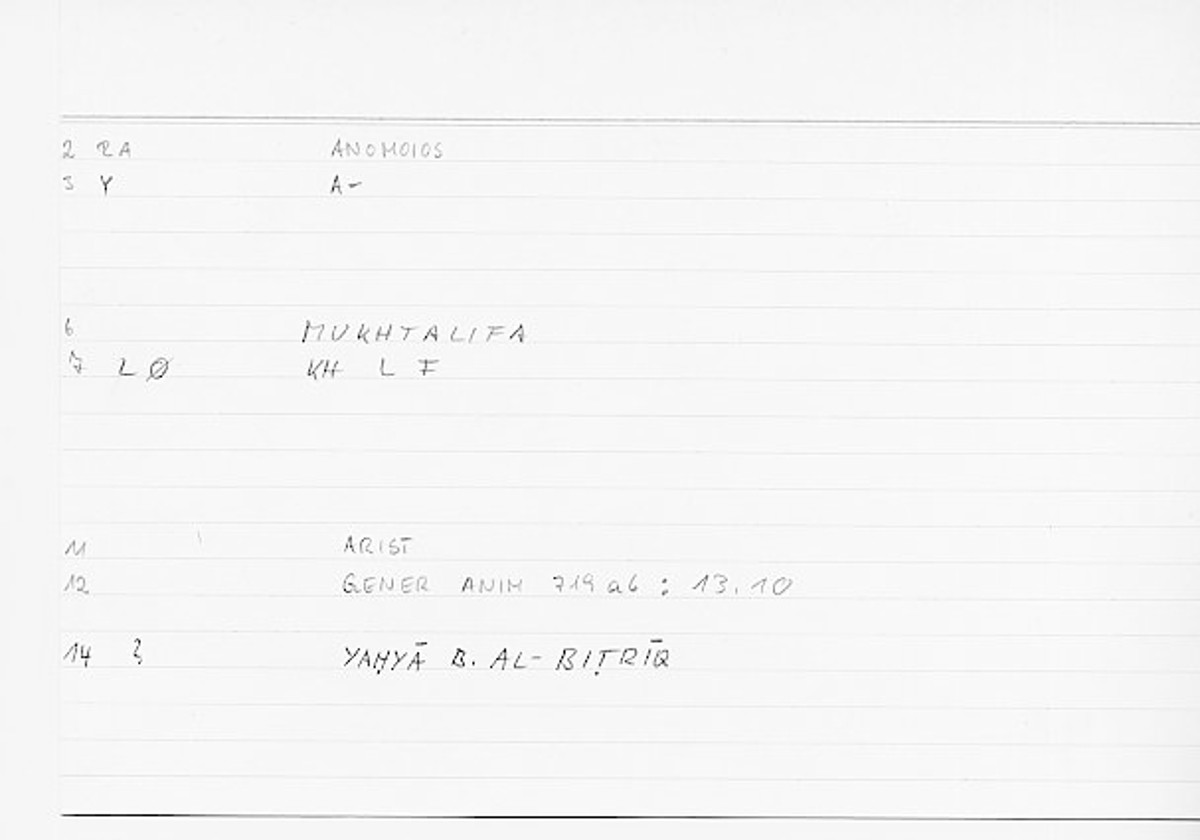 2 RA ANOMOIOS
3 Y A-
6 MUKHTALIFA
7 L Ø KH L F
11 ARIST
12 GENER ANIM 719a6 : 13.10
14 YAḤYĀ B. AL-BIṬRĪQ